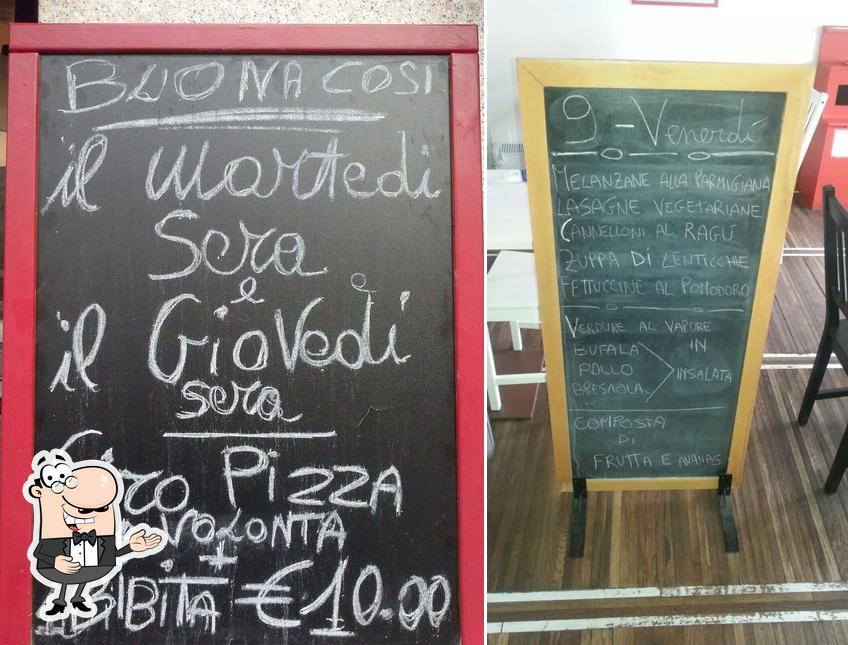 BUONA COSI
il Martedi
Sera
e
il Giovedì
sera
Giro PIZZA
VOLONTA
+
BIBITA € 10.00
9 - Venerdí
MELANZANE ALLA PARMIGIANA
LASAGNE VEGETARIANE
CANNELLONI AL RAGÚ
ZUPPA DI LENTICCHIE
FETTUCCINE AL POMODORO
VERDURE AL VAPORE
BUFALA
POLLO
BRESAOLA
IN
INSALATA
COMPOSTA
DI
FRUTTA E ANANAS